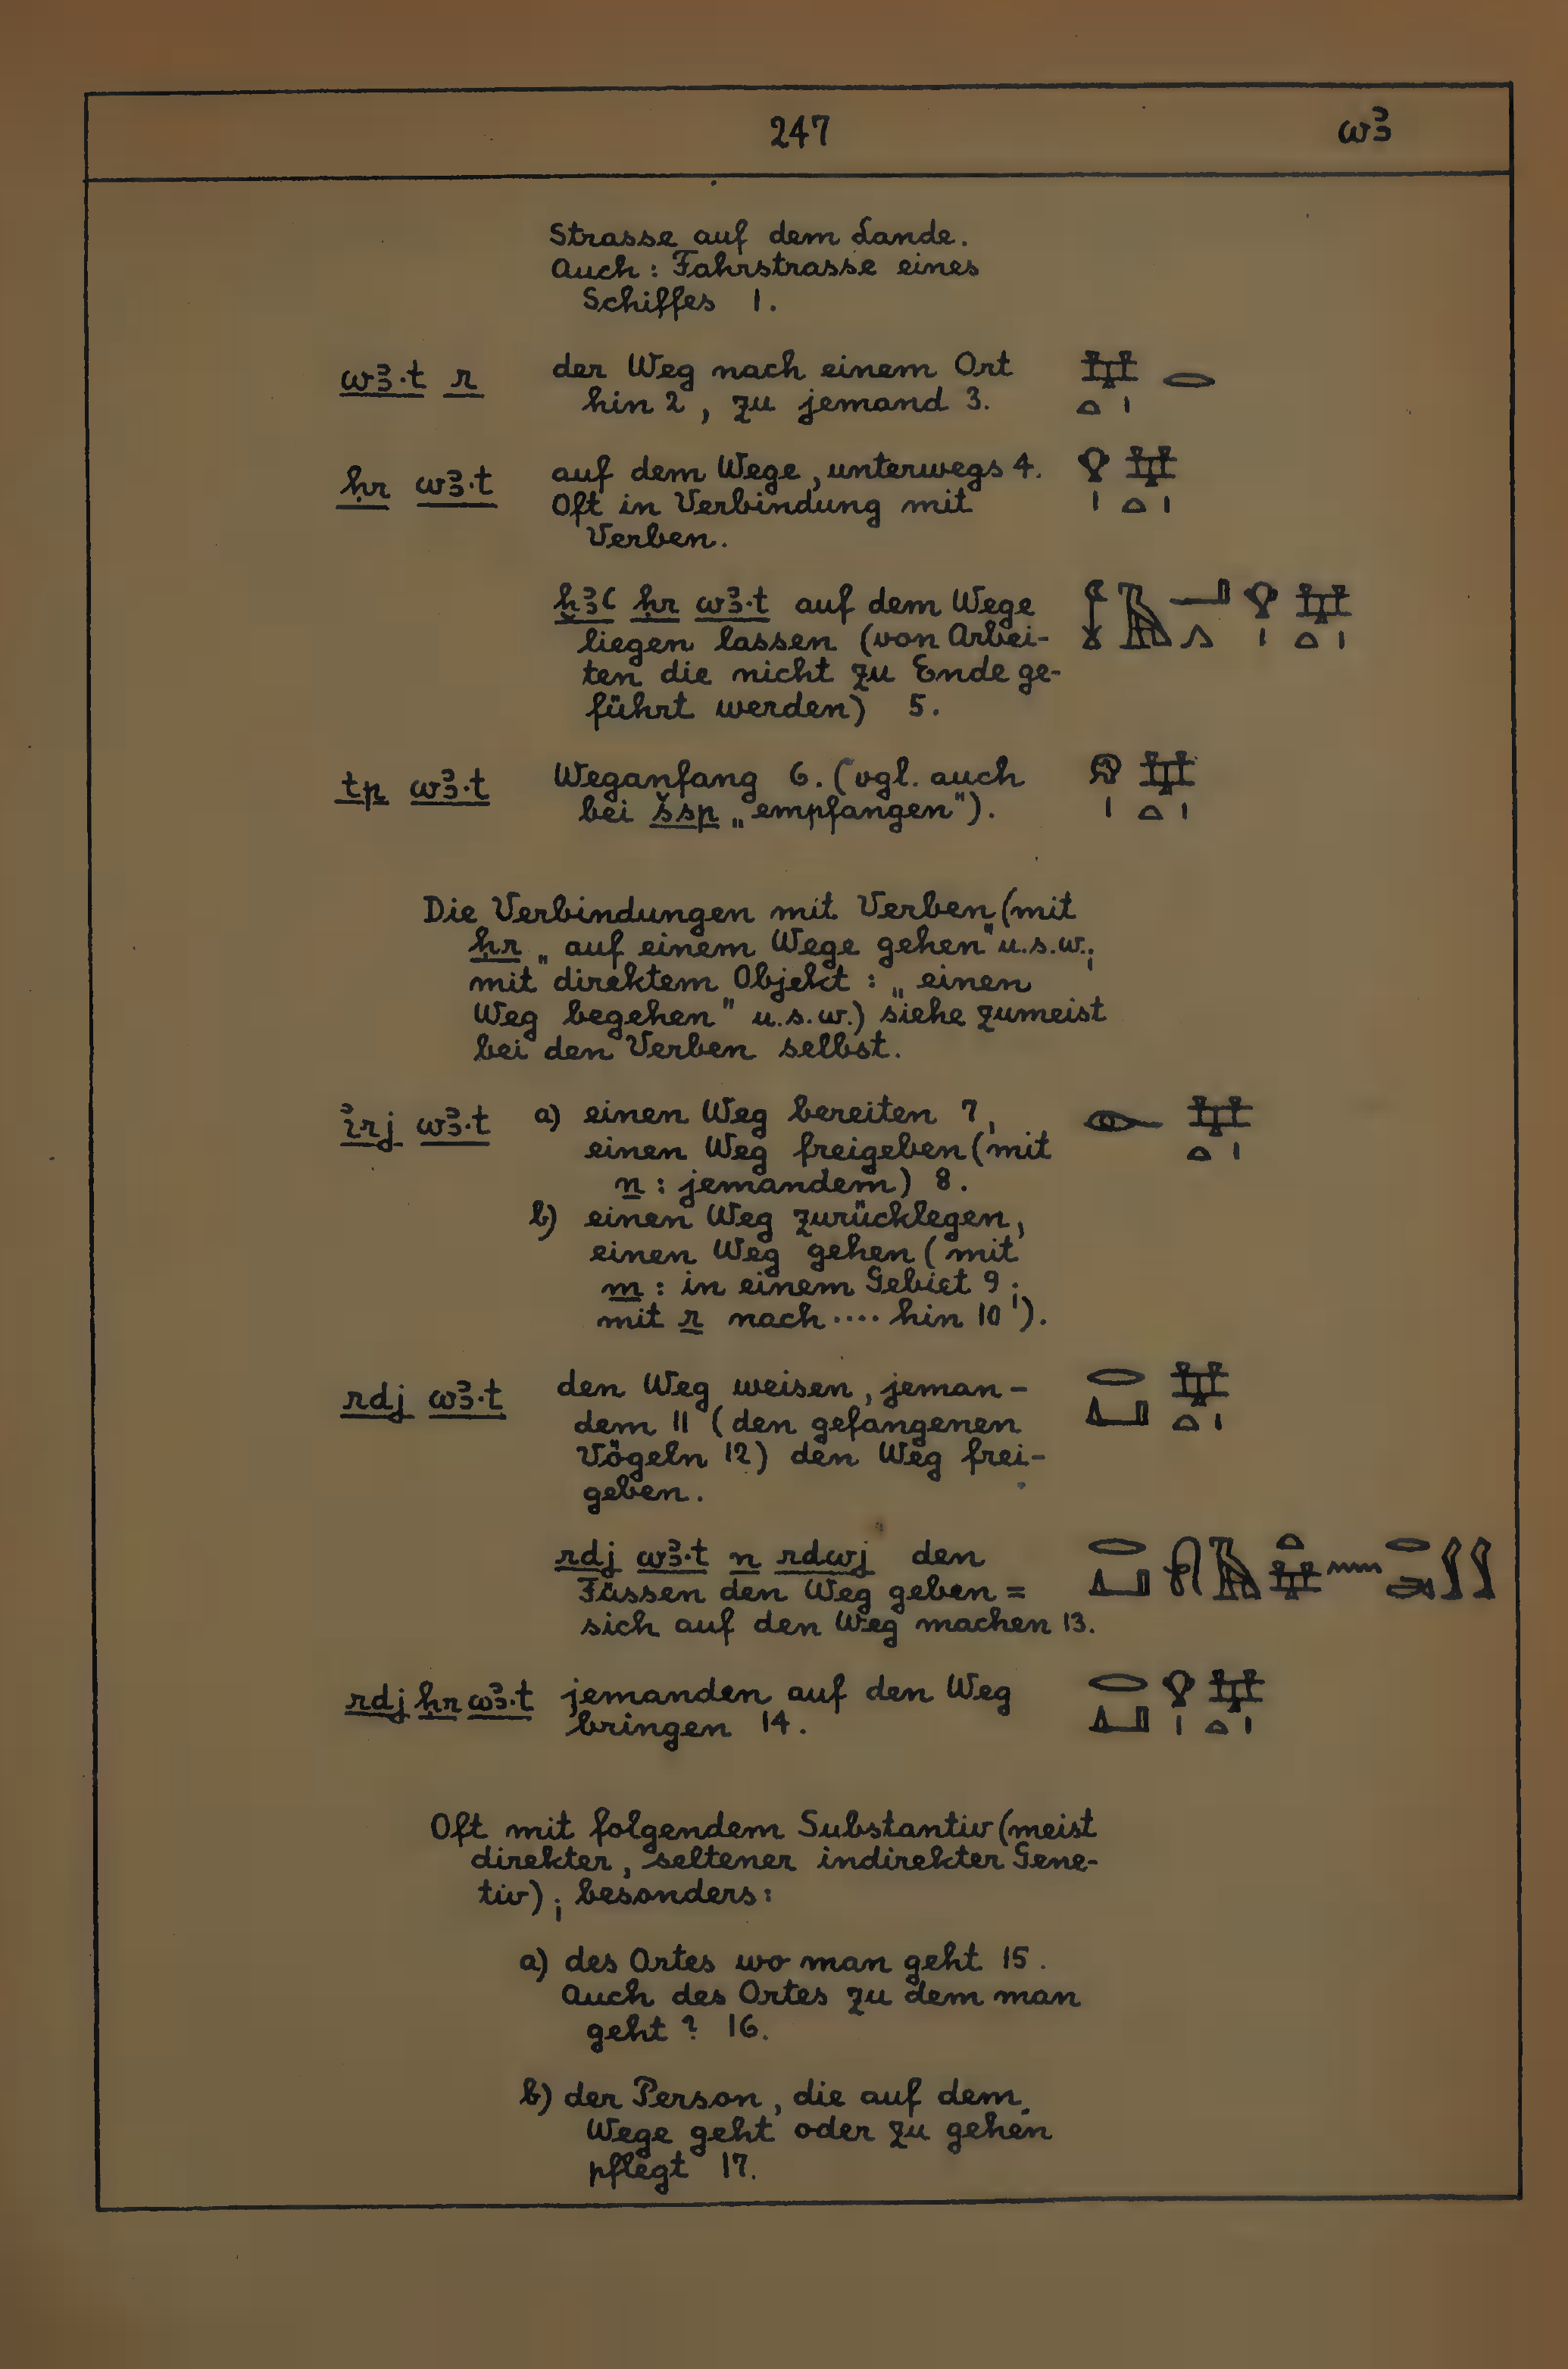 247 wꜣ
Strasse auf dem Lande.
Auch : Fahrstrasse eines
Schiffes 1.
wꜣ.t r der Weg nach einem Ort 𓈐 𓂋
hin 2, zu jemand 3. 𓏏 𓏤
ḥr wꜣ.t auf dem Wege, unterwegs 4. 𓁷 𓈐
Oft in Verbindung mit 𓏤 𓏏 𓏤
Verben.
ḫꜣꜥ ḥr wꜣ.t auf dem Wege
liegen lassen (von Arbei-
ten die nicht zu Ende ge-
führt werden) 5.
tp wꜣ.t Weganfang 6. (vgl. auch 𓁶 𓈐
bei šsp „empfangen"). 𓏤 𓏏 𓏤
Die Verbindungen mit Verben (mit
ḥr „auf einem Wege gehen" u.s.w.;
mit direktem Objekt : „einen
Weg begehen" u.s.w.) siehe zumeist
bei den Verben selbst.
irj wꜣ.t a) einen Weg bereiten 7, 𓁹 𓈐
einen Weg freigeben (mit 𓏏 𓏤
n : jemandem) 8.
b) einen Weg zurücklegen,
einen Weg gehen (mit
m : in einem Gebiet 9;
mit r nach .... hin 10).
rdj wꜣ.t den Weg weisen, jeman- 𓂋 𓈐
dem 11 (den gefangenen 𓂞 𓏏 𓏤
Vögeln 12) den Weg frei-
geben.
rdj wꜣ.t n rdwj den
Füssen den Weg geben =
sich auf den Weg machen 13.
rdj ḥr wꜣ.t jemanden auf den Weg 𓂋 𓁷 𓈐
bringen 14. 𓂞 𓏤 𓏏 𓏤
Oft mit folgendem Substantiv (meist
direkter, seltener indirekter Gene-
tiv); besonders:
a) des Ortes wo man geht 15.
Auch des Ortes zu dem man
geht ? 16.
b) der Person, die auf dem
Wege geht oder zu gehen
pflegt 17.